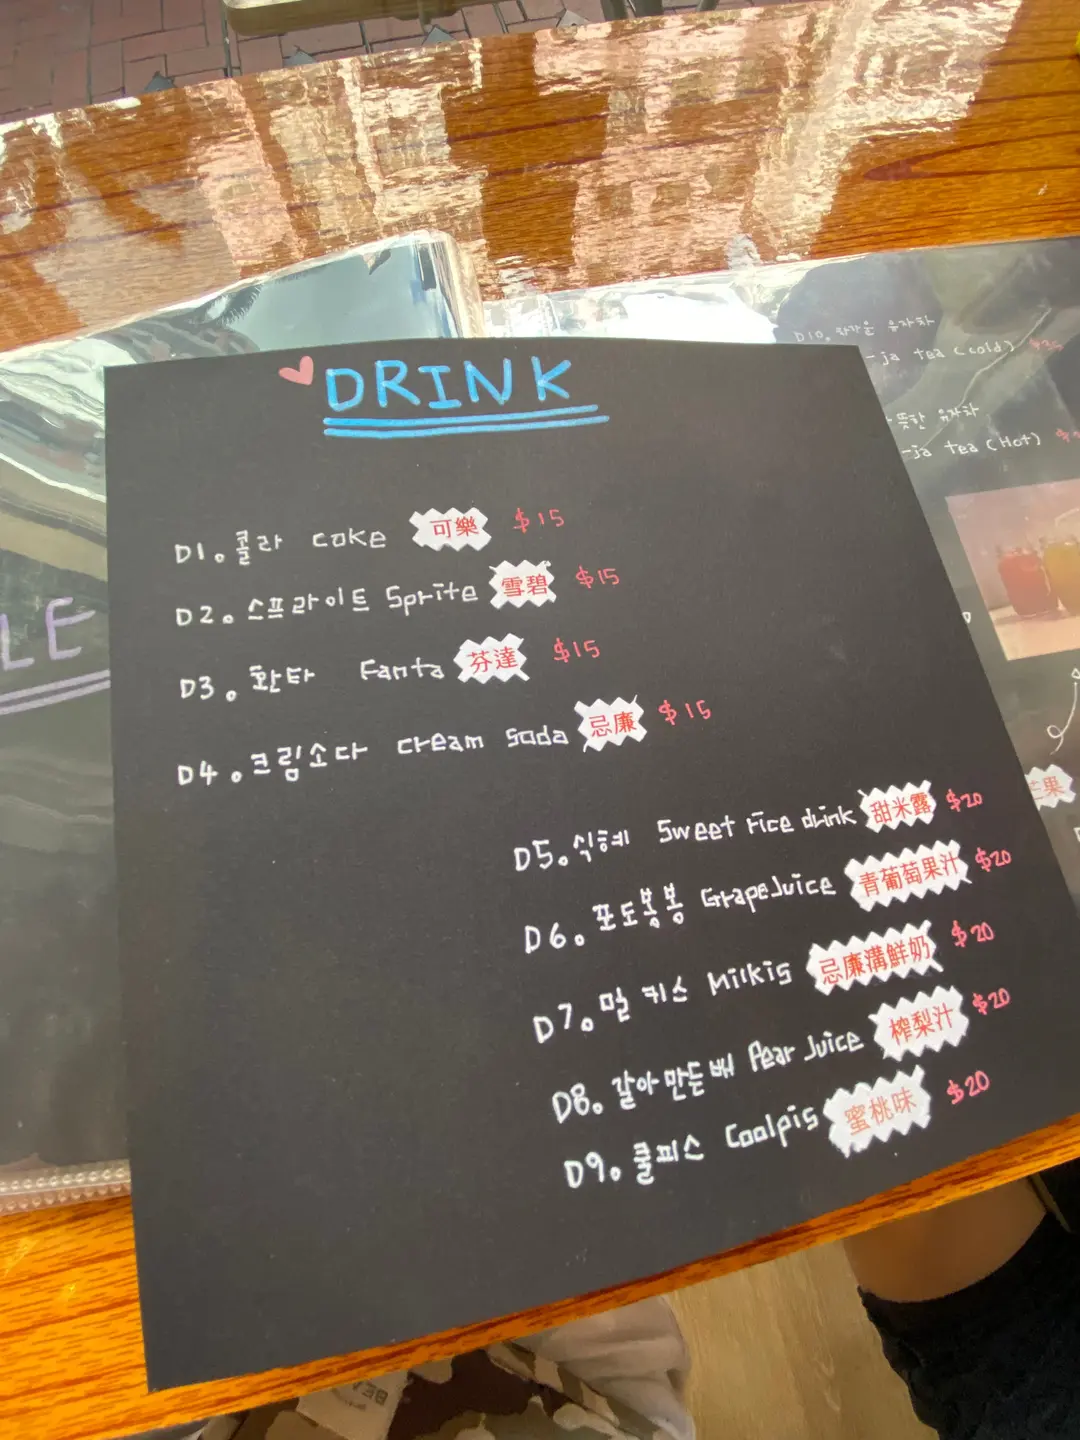 DRINK
D1. 콜라 coke 可樂 $15
D2. 스프라이트 Sprite 雪碧 $15
D3. 환타 Fanta 芬達 $15
D4. 크림소다 cream soda 忌廉 $15
D5. 식혜 Sweet rice drink 甜米露 $20
D6. 포도봉봉 Grape Juice 青葡萄果汁 $20
D7. 밀키스 Milkis 忌廉溝鮮奶 $20
D8. 갈아만든배 Pear Juice 榨梨汁 $20
D9. 쿨피스 Coolpis 蜜桃味 $20
D10. 차가운 유자차
-ja tea (cold)
뜻한 유자차
-ja tea (Hot)
LE
果